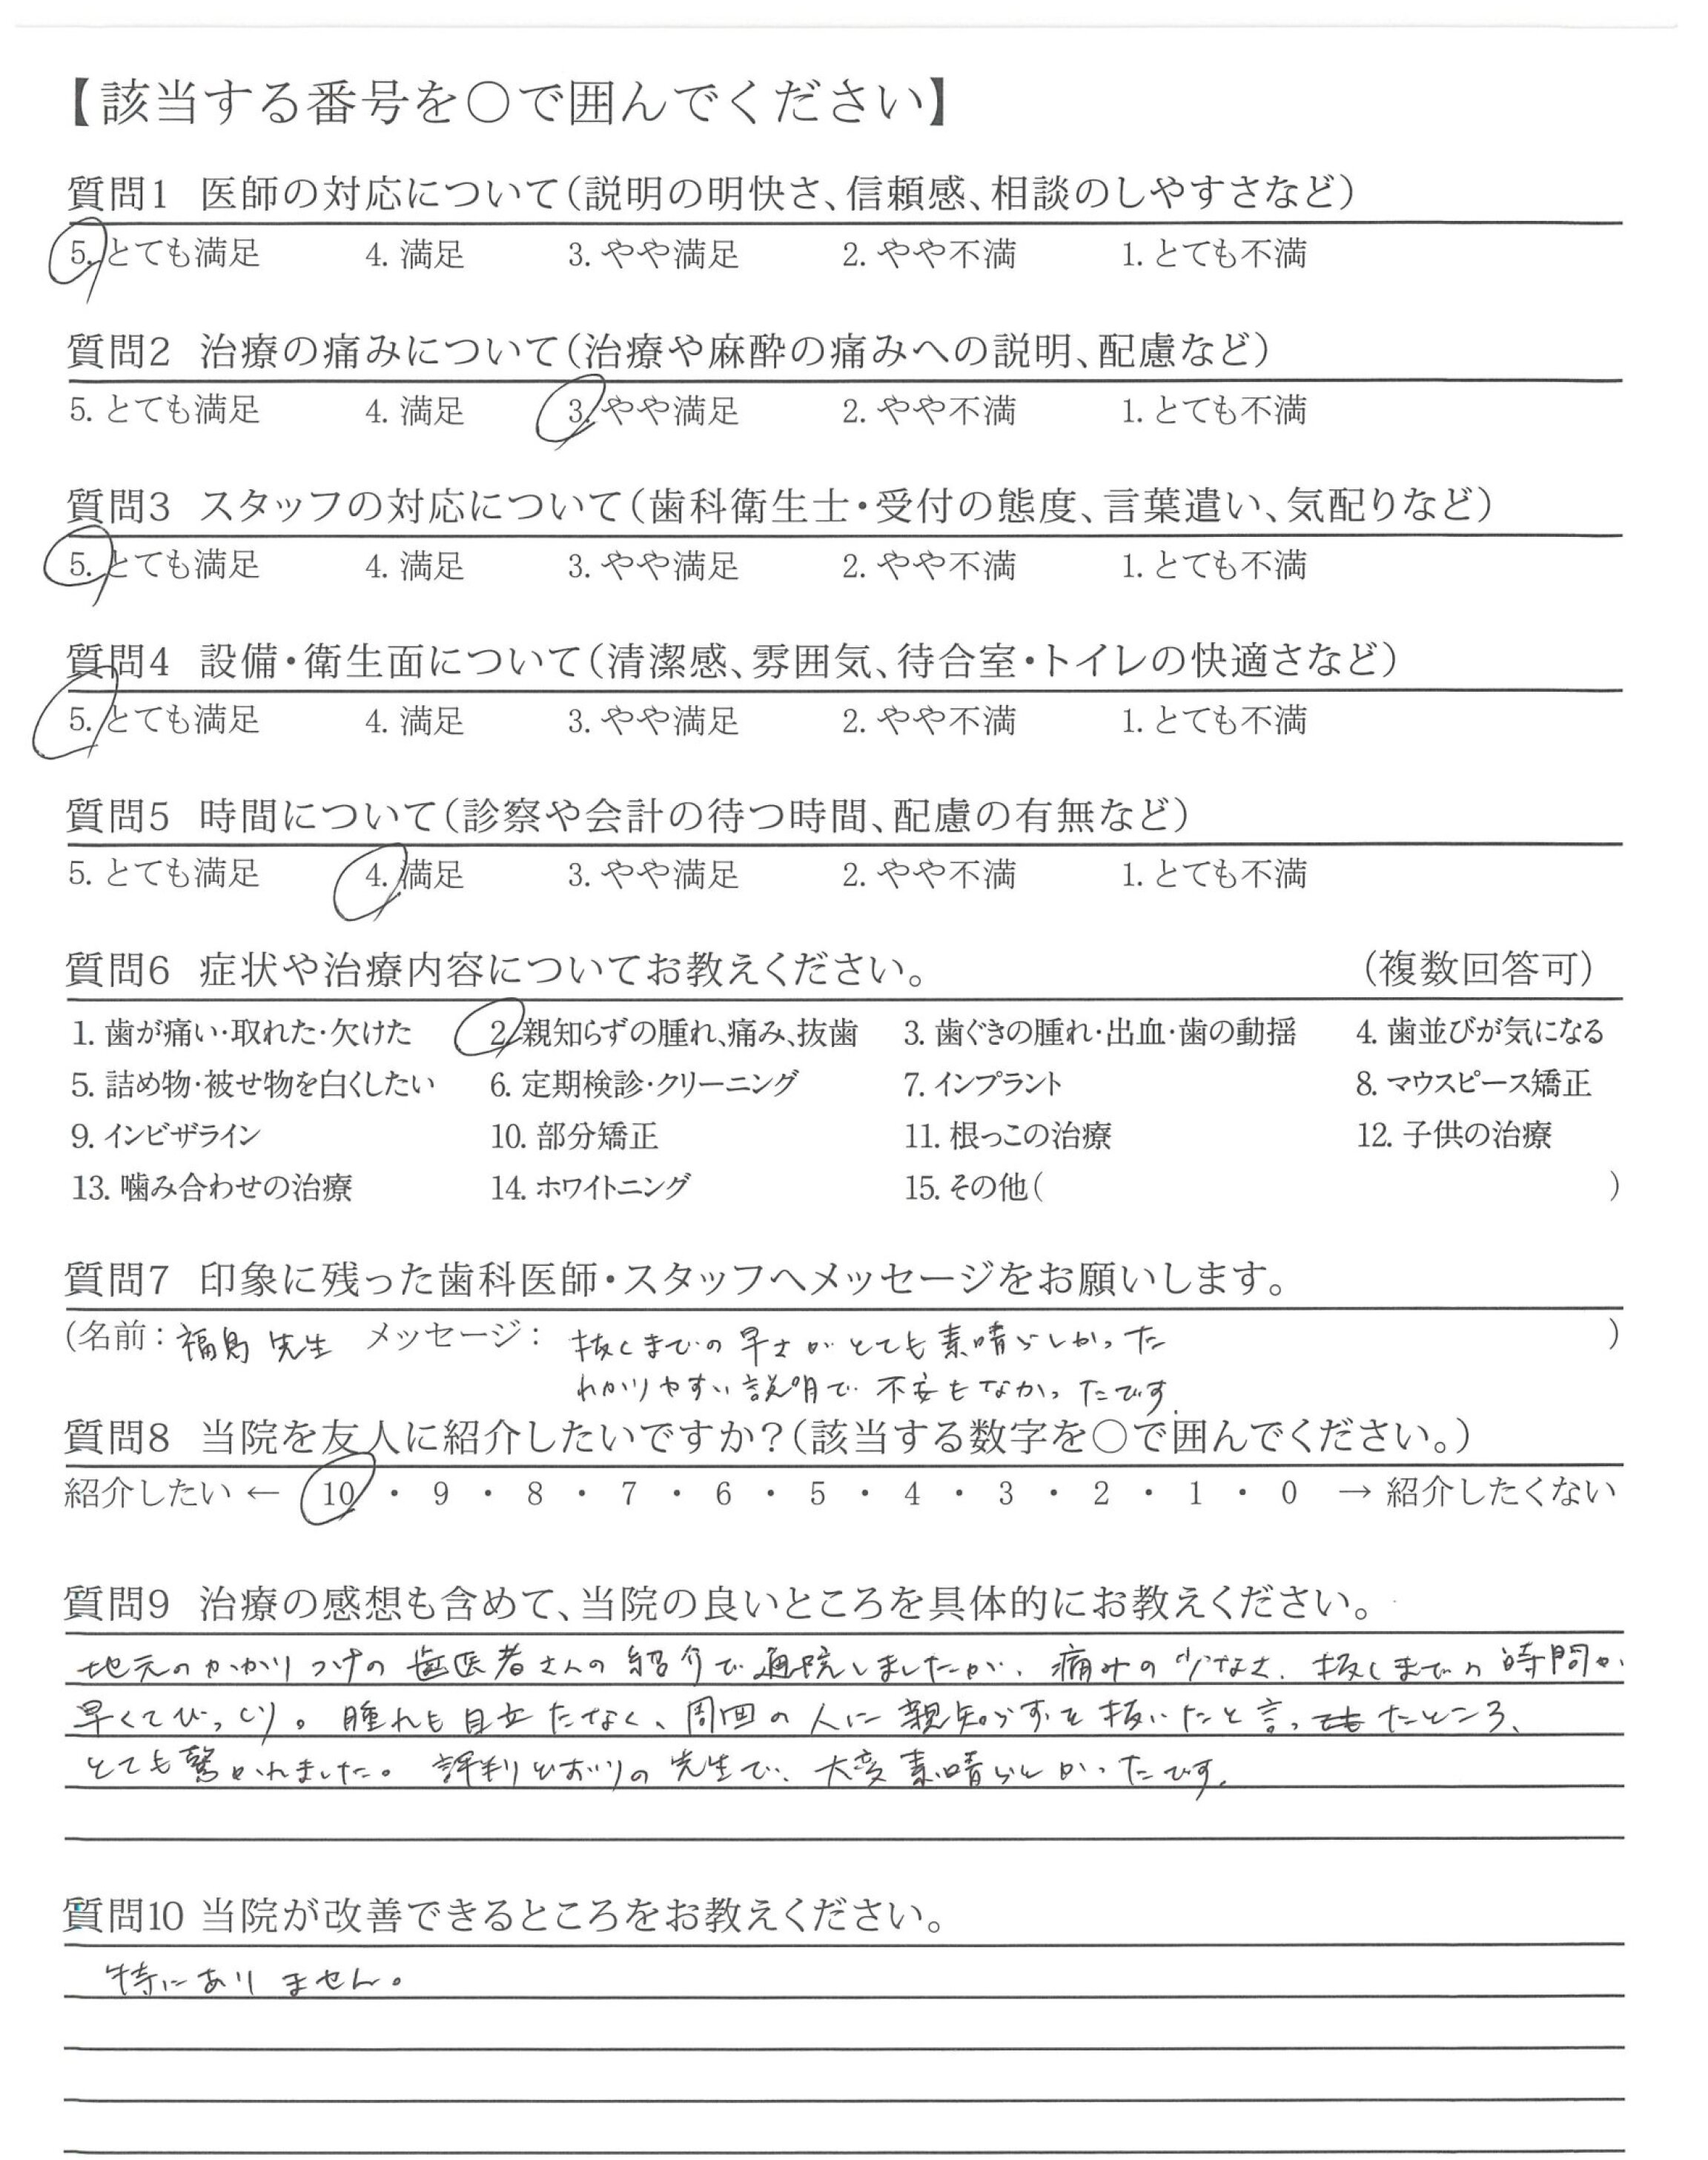 【該当する番号を○で囲んでください】
質問1 医師の対応について(説明の明快さ、信頼感、相談のしやすさなど)
5. とても満足 4. 満足 3. やや満足 2. やや不満 1. とても不満
質問2 治療の痛みについて(治療や麻酔の痛みへの説明、配慮など)
5. とても満足 4. 満足 3. やや満足 2. やや不満 1. とても不満
質問3 スタッフの対応について(歯科衛生士・受付の態度、言葉遣い、気配りなど)
5. とても満足 4. 満足 3. やや満足 2. やや不満 1. とても不満
質問4 設備・衛生面について(清潔感、雰囲気、待合室・トイレの快適さなど)
5. とても満足 4. 満足 3. やや満足 2. やや不満 1. とても不満
質問5 時間について(診察や会計の待つ時間、配慮の有無など)
5. とても満足 4. 満足 3. やや満足 2. やや不満 1. とても不満
質問6 症状や治療内容についてお教えください。 (複数回答可)
1. 歯が痛い・取れた・欠けた 2. 親知らずの腫れ、痛み、抜歯 3. 歯ぐきの腫れ・出血・歯の動揺 4. 歯並びが気になる
5. 詰め物・被せ物を白くしたい 6. 定期検診・クリーニング 7. インプラント 8. マウスピース矯正
9. インビザライン 10. 部分矯正 11. 根っこの治療 12. 子供の治療
13. 噛み合わせの治療 14. ホワイトニング 15. その他( )
質問7 印象に残った歯科医師・スタッフへメッセージをお願いします。
(名前: 福島 先生 メッセージ: 抜くまでの早さがとても素晴らしかった )
わかりやすい説明で不安もなかったです.
質問8 当院を友人に紹介したいですか?(該当する数字を○で囲んでください。)
紹介したい ← 10 ・ 9 ・ 8 ・ 7 ・ 6 ・ 5 ・ 4 ・ 3 ・ 2 ・ 1 ・ 0 → 紹介したくない
質問9 治療の感想も含めて、当院の良いところを具体的にお教えください。
地元のかかりつけの歯医者さんの紹介で通院しましたが、痛みの少なさ、抜くまでの時間が
早くてびっくり。腫れも目立たなく、周囲の人に親知らずを抜いたと言ったところ、
とても驚かれました。評判どおりの先生で、大変素晴らしかったです.
質問10 当院が改善できるところをお教えください。
特にありません。